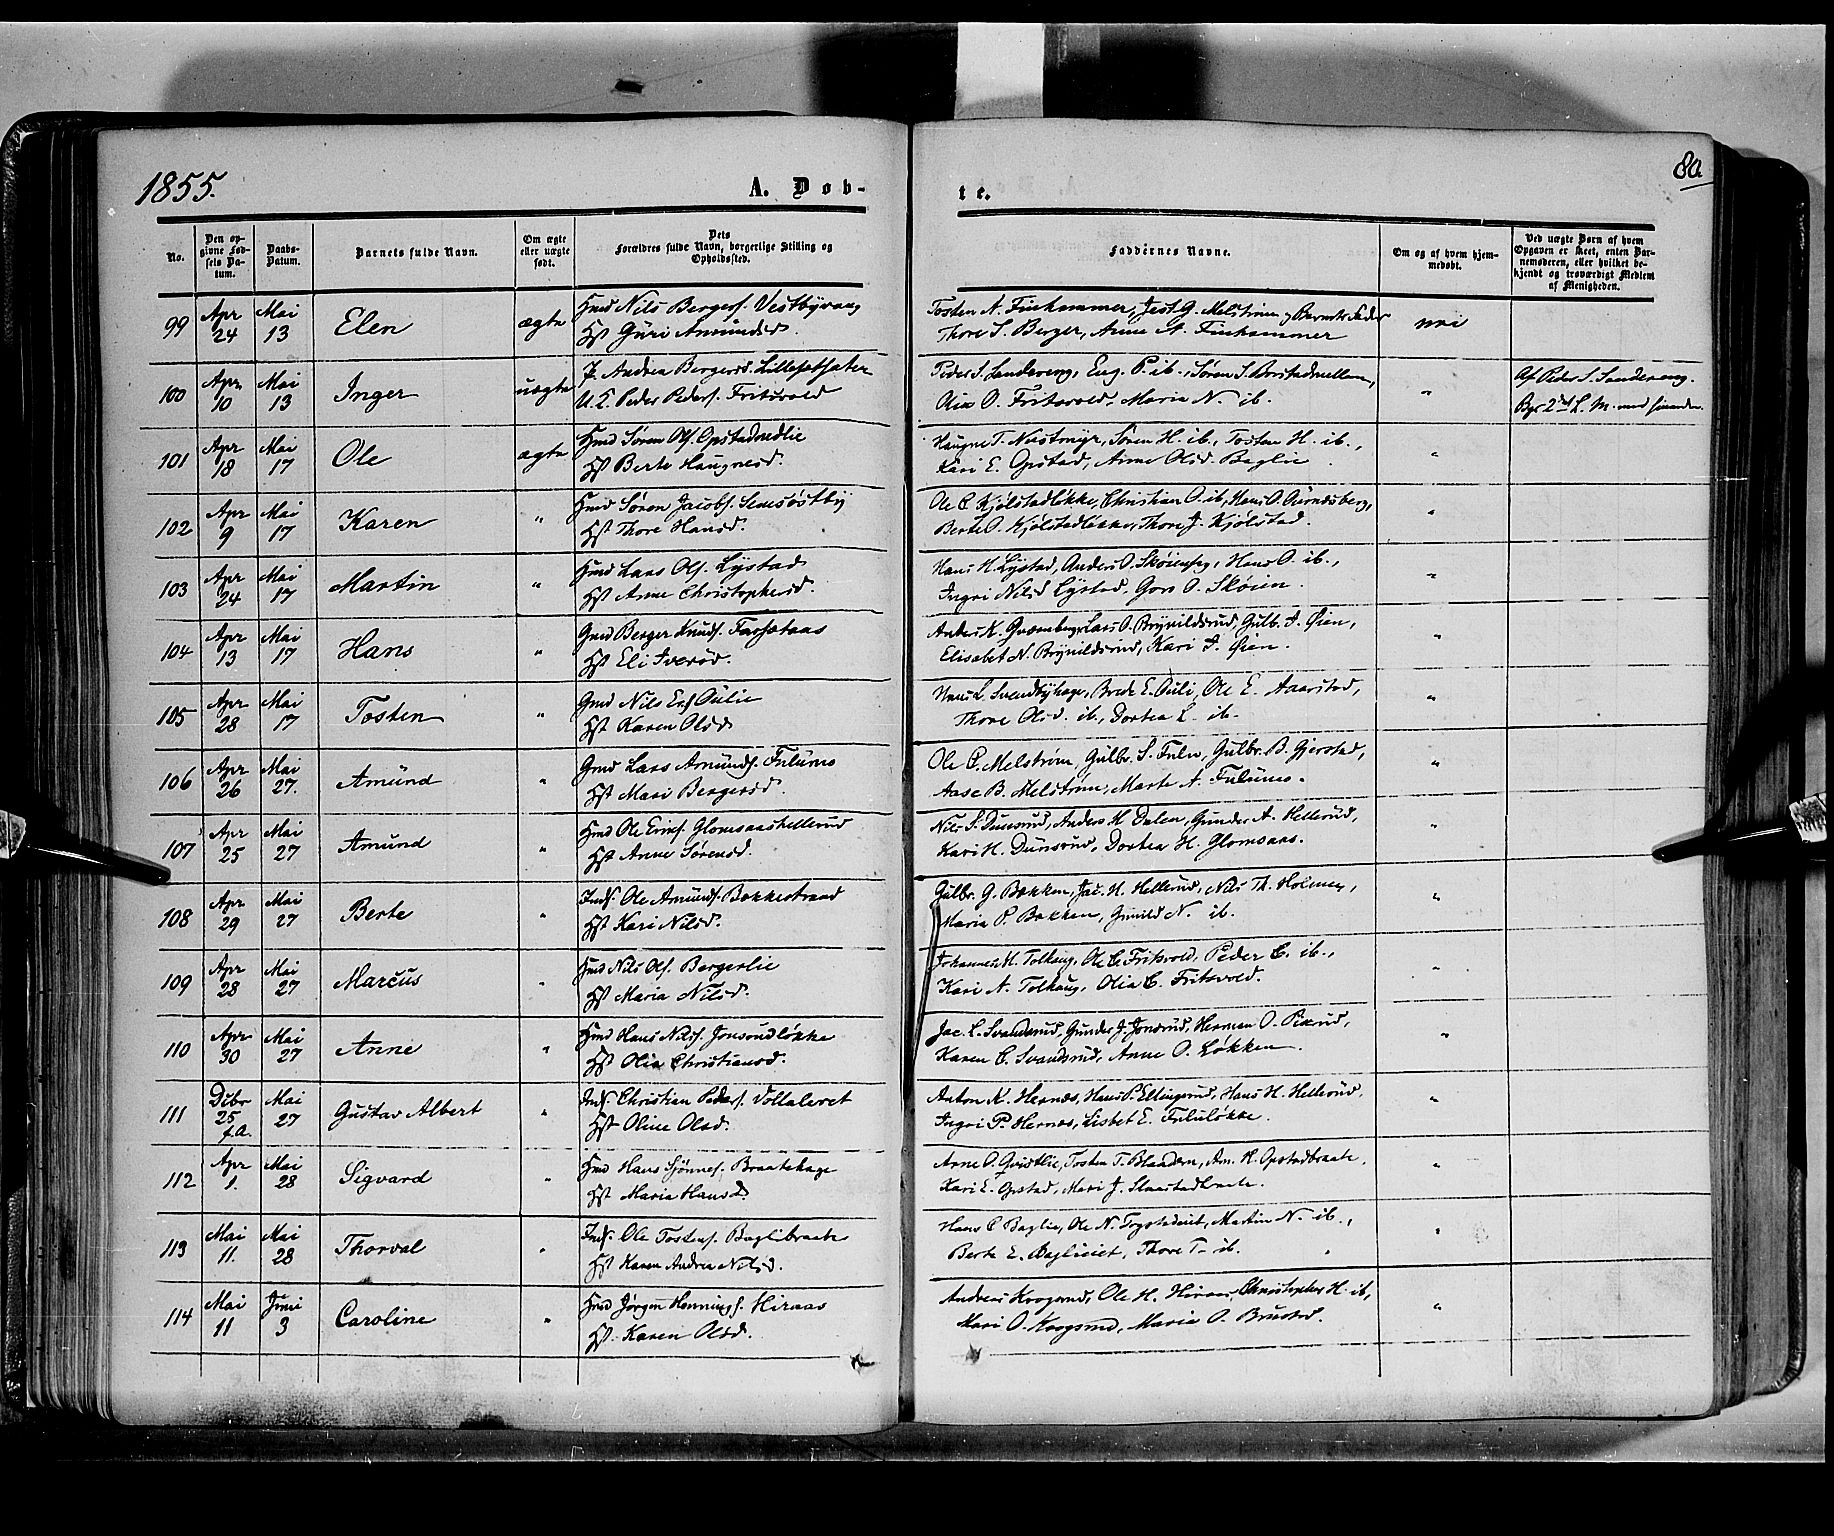 1855.
A. Døb-
te.
80
No.
Den op-
givne Fød-
sels Da-
tum.
Daabs-
Datum.
Barnets fulde Navn.
Om ægte
eller uægte
født.
Dets
Forældres fulde Navn, borgerlige Stilling og
Opholdssted.
Faddernes Navne.
Om og af hvem hjem-
medøbt.
Ved uægte Børn af hvem
Opgaven er skeet, enten Bar-
nemoderen, eller hvilket be-
kjendt og troværdigt Medlem
af Menigheden.
99 Apr 24 Mai 13 Elen ægte
Hmd Nils Bergers. Vestbyvang
Hst Guri Amundsd.
Tosten A. Finhammer, Jest G. Melstrøm,
Thore S. Berger, Anne A. Finhammer
nei
100 Apr. 10 Mai 13 Inger uægte
P. Andrea Bergersd. Lillesætsæter
U.K. Peder Peders. Fritsvold
Peder S. Sandereng, Eng. P. ib., Søren S.
Olia O. Fritsvold, Maria N. ib.
"
Af Peder S. Sandereng.
101 Apr 18 Mai 17 Ole ægte
Hmd Søren Ols. Opstadnedlie
Hst Berte Haugnesd.
Haugne T. Næstmyr, Søren H. ib., Tosten H. ib.,
Kari E. Opstad, Anne Olsd. Baglie
"
102 Apr 9 Mai 17 Karen "
Hmd Søren Jacobs. Semsøstby
Hst Thore Hansd.
Ole C. Kjølstadløkke, Christian O. ib, Hans O.
Berte O. Kjølstadløkke, Thore J. Kjølstad.
"
103 Apr 24 Mai 17 Martin "
Hmd Lars Ols. Lystad
Hst Anne Christophersd.
Hans H. Lystad, Anders O. Skøien, Hans O. ib.,
Ingri Nilsd Lystad, Goro O. Skøien.
"
104 Apr 13 Mai 17 Hans "
Gmd Berger Knuds. Farsætaas
Hst Eli Iversd.
Anders K. Lars O. Brynildsrud, Gulb. I. Øien,
Elisabet N. Brynildsrud, Kari I. Øien.
"
105 Apr 28 Mai 17 Tosten "
Gmd Nils Er. Oulie
Hst Karen Olsd
Hans L. Svendbyhage, Brede E. Ouli, Ole E. Aarstad,
Thore Olsd. ib., Dortea L. ib.
"
106 Apr 26 Mai 27. Amund "
Gmd Lars Amunds. Fulumo
Hst Mari Bergersd.
Ole P. Melstrøm, Gulbr. S. Fulu, Gulbr. B. Gjerstad,
Aase B. Melstrøm, Marte A. Fulumo.
"
107 Apr 25 Mai 27 Amund "
Hmd Ole Eriks. Glomsaashellerud
Hst Anne Sørensd.
Nils S. Dunsrud, Anders H Dalen, Gunder A. Hellerud,
Kari H. Dunsrud, Dortea H. Glomsaas.
"
108 Apr 29 Mai 27 Berte "
Inds. Ole Amunds. Bakkestrand
Hst Kari Nilsd.
Gulbr. G. Bakken, Jac. H. Hellerud, Nils Th. Holmen,
Maria P. Bakken, Gunild N. ib.
"
109 Apr 28 Mai 27 Marcus "
Hmd Nils Ols. Bergerlie
Hst Maria Nilsd.
Johannes M. Tolhaug, Ole C. Fritsvold, Peder C. ib.,
Kari N. Tolhaug, Olia C. Fritsvold.
"
110 Apr 30 Mai 27 Anne "
Hmd Hans Nils. Jonsrudløkke
Hst Olia Christiansd.
Jac. L. Svandsrud, Gunder J. Jonsrud, Herman O.
Karen C. Svandsrud, Anne O. Løkken.
"
111 Dcbr 25 f.A. Mai 27 Gustav Albert "
Inds Christian Peders.
Hst Oline Olsd.
Anton K. Hernæs, Hans P. Ellingsrud, Hans H. Hellerud,
Ingri P. Hernæs, Lisbet E. Fululøkke.
"
112 Apr 1. Mai 28 Sigvard "
Hmd Hans Braatehage
Hst Maria Hansd.
Arne O. Qvistlie, Tosten T. Am. H. Opstadbraate,
Kari E. Opstad, Mari J.
"
113 Mai 11. Mai 28 Thorval "
Inds. Ole Tostens. Baglibraate
Hst Karen Andrea Nilsd.
Hans C Baglie, Ole N. Martin N. ib.,
Berte E. Thore T. ib.
"
114 Mai 11 Juni 3 Caroline "
Hmd Jørgen Hennings. Hiraas
Hst. Karen Olsd.
Andreas Krogsrud, Ole H. Hiraas, Christopher H. ib,
Mari O. Krogsrud, Maria O. Brustad.
"